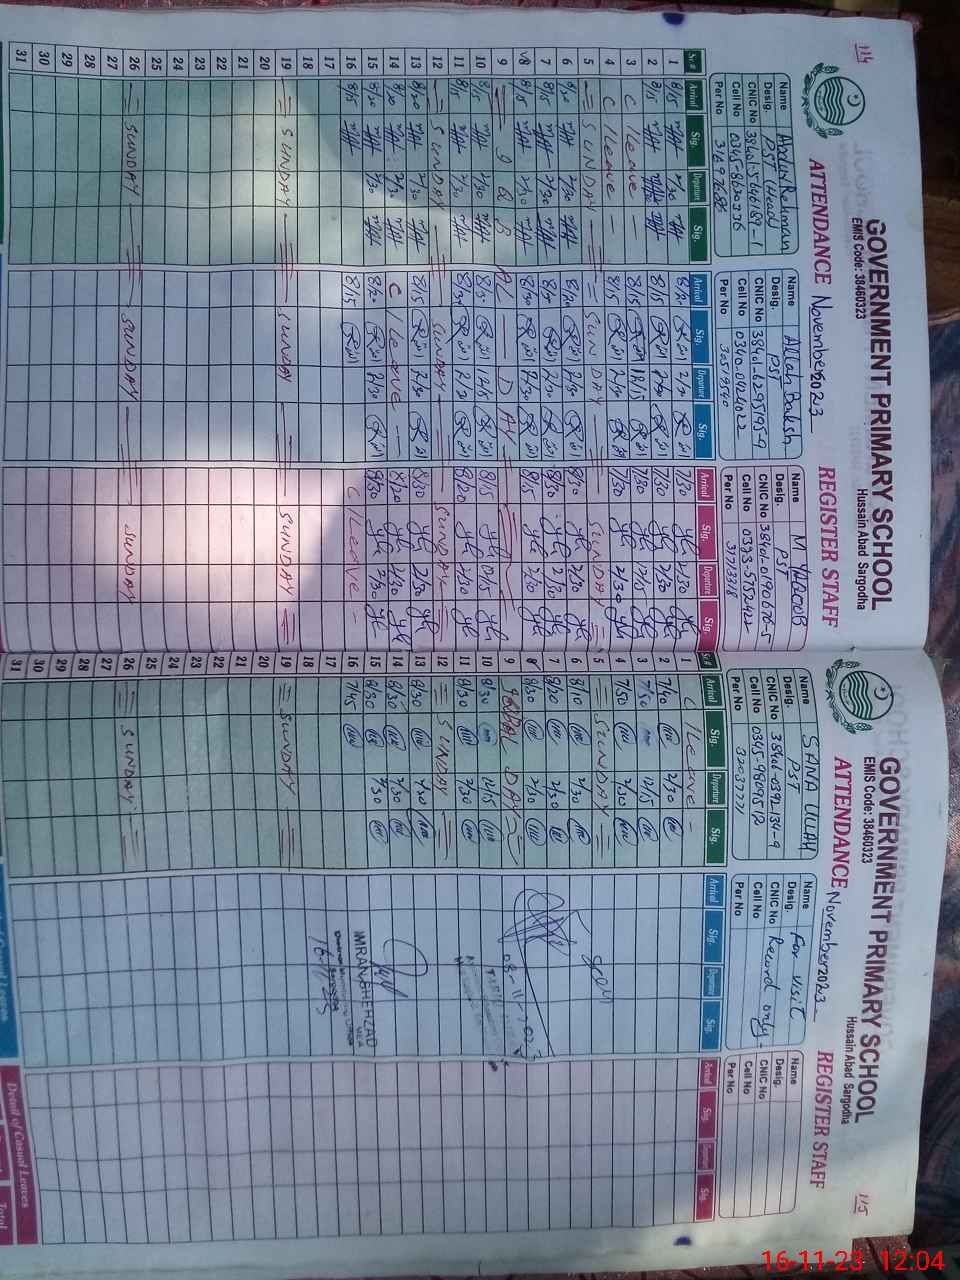 114
GOVERNMENT PRIMARY SCHOOL
EMIS Code: 38460323
Hussain Abad Sargodha
ATTENDANCE November 2023 REGISTER STAFF
Name Abdur Rehman
Desig. PST (Head)
CNIC No 38401-5646189-1
Cell No 0345-8640336
Per No
Name Allah Baksh
Desig. PST
CNIC No 38401-6295195-9
Cell No 0340-0424022
Per No 30519540
Name M YAQOOB
Desig. PST
CNIC No 38401-0190676-5
Cell No 0333-5752422
Per No 31713318
Sr.# Arrival Sig. Departure Sig. Arrival Sig. Departure Sig. Arrival Sig. Departure Sig.
1 8/15 2/30 8/20 2/30 7/30 2/30
2 8/15 8/15 2/30 7/30 2/30
3 C/Leave 8/15 12/15 7/30 12/15
4 C/Leave 8/15 2/30 7/30 2/30
5 SUNDAY SUNDAY SUNDAY
6 8/20 2/30 8/20 2/30 8/30 2/30
7 8/15 2/30 8/20 2/30 8/20 2/30
8 8/15 2/30 8/15 2/30 8/15 2/30
9 IQBAL DAY
10 8/15 2/30 8/30 12/15 8/15
11 8/15 2/30 8/30 2/30 8/20 2/30
12 SUNDAY SUNDAY SUNDAY
13 8/20 2/30 8/15 2/30 8/30 2/30
14 8/20 2/30 C/Leave 8/20 2/30
15 8/20 2/30 8/20 2/30 8/30 2/30
16 8/15 8/15 C/Leave
17
18
19 SUNDAY SUNDAY SUNDAY
20
21
22
23
24
25
26 SUNDAY SUNDAY SUNDAY
27
28
29
30
31
115
GOVERNMENT PRIMARY SCHOOL
EMIS Code: 38460323
Hussain Abad Sargodha
ATTENDANCE November 2023 REGISTER STAFF
Name SANA ULLAH
Desig. PST
CNIC No 38401-0392134-9
Cell No 0345-9809512
Per No 32037771
Name For visit
Desig. Record only
CNIC No
Cell No
Per No
Name
Desig.
CNIC No
Cell No
Per No
Sr.# Arrival Sig. Departure Sig. Arrival Sig. Departure Sig. Arrival Sig. Departure Sig.
1 C/Leave
2 7/40 2/30
3 7/50 12/15
4 7/50 2/30
5 SUNDAY
6 8/10 2/30
7 8/20 2/30
8 8/30 2/30
9 IQBAL DAY
08-11-2023
10 8/30 12/15
11 8/30 2/30
12 SUNDAY
13 8/30 2/30
14 8/30 2/30
15 8/30 2/30
IMRAN SHEHZAD
16 7/45
16-11-23
17
18
19 SUNDAY
20
21
22
23
24
25
26 SUNDAY
27
28
29
30
31
Detail of Casual Leaves
Total
16-11-23 12:04